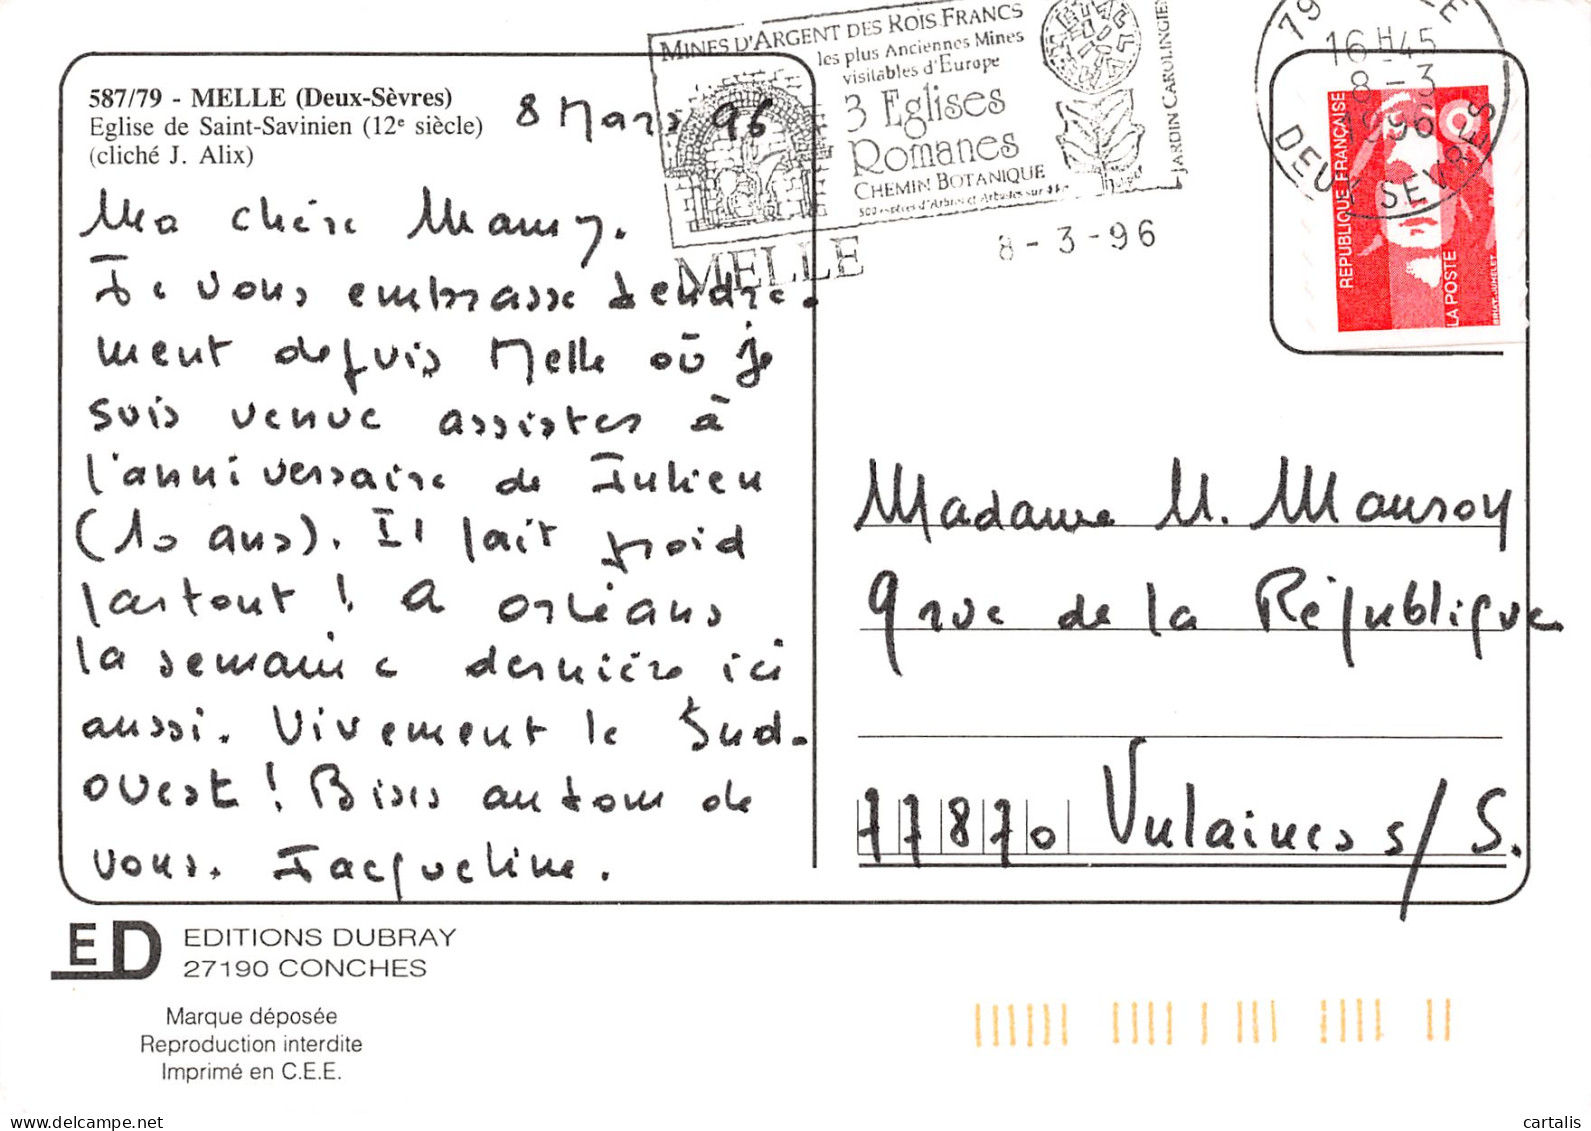 MINES D'ARGENT DES ROIS FRANCS
les plus Anciennes Mines
visitables d'Europe
3 Eglises
Romanes
CHEMIN BOTANIQUE
500 espèces d'Arbres et Arbustes sur
JARDIN CAROLINGIEN
MELLE
8-3-96
79
16H45
8-3
1996
DEUX SEVRES
REPUBLIQUE FRANÇAISE
LA POSTE
587/79 - MELLE (Deux-Sèvres)
Eglise de Saint-Savinien (12e siècle)
(cliché J. Alix)
8 Mars 96
Ma chère Mamy.
Je vous embrasse tendre-
ment depuis Melle où je
suis venue assister à
l'anniversaire de Julien
(10 ans). Il fait froid
partout ! A Orléans
la semaine dernière ici
aussi. Vivement le Sud-
ouest ! Bises autour de
vous. Jacqueline.
Madame M. Mauroy
9 rue de la République
77870 Vulaines s/S.
ED
EDITIONS DUBRAY
27190 CONCHES
Marque déposée
Reproduction interdite
Imprimé en C.E.E.
delcampe.net
cartalis